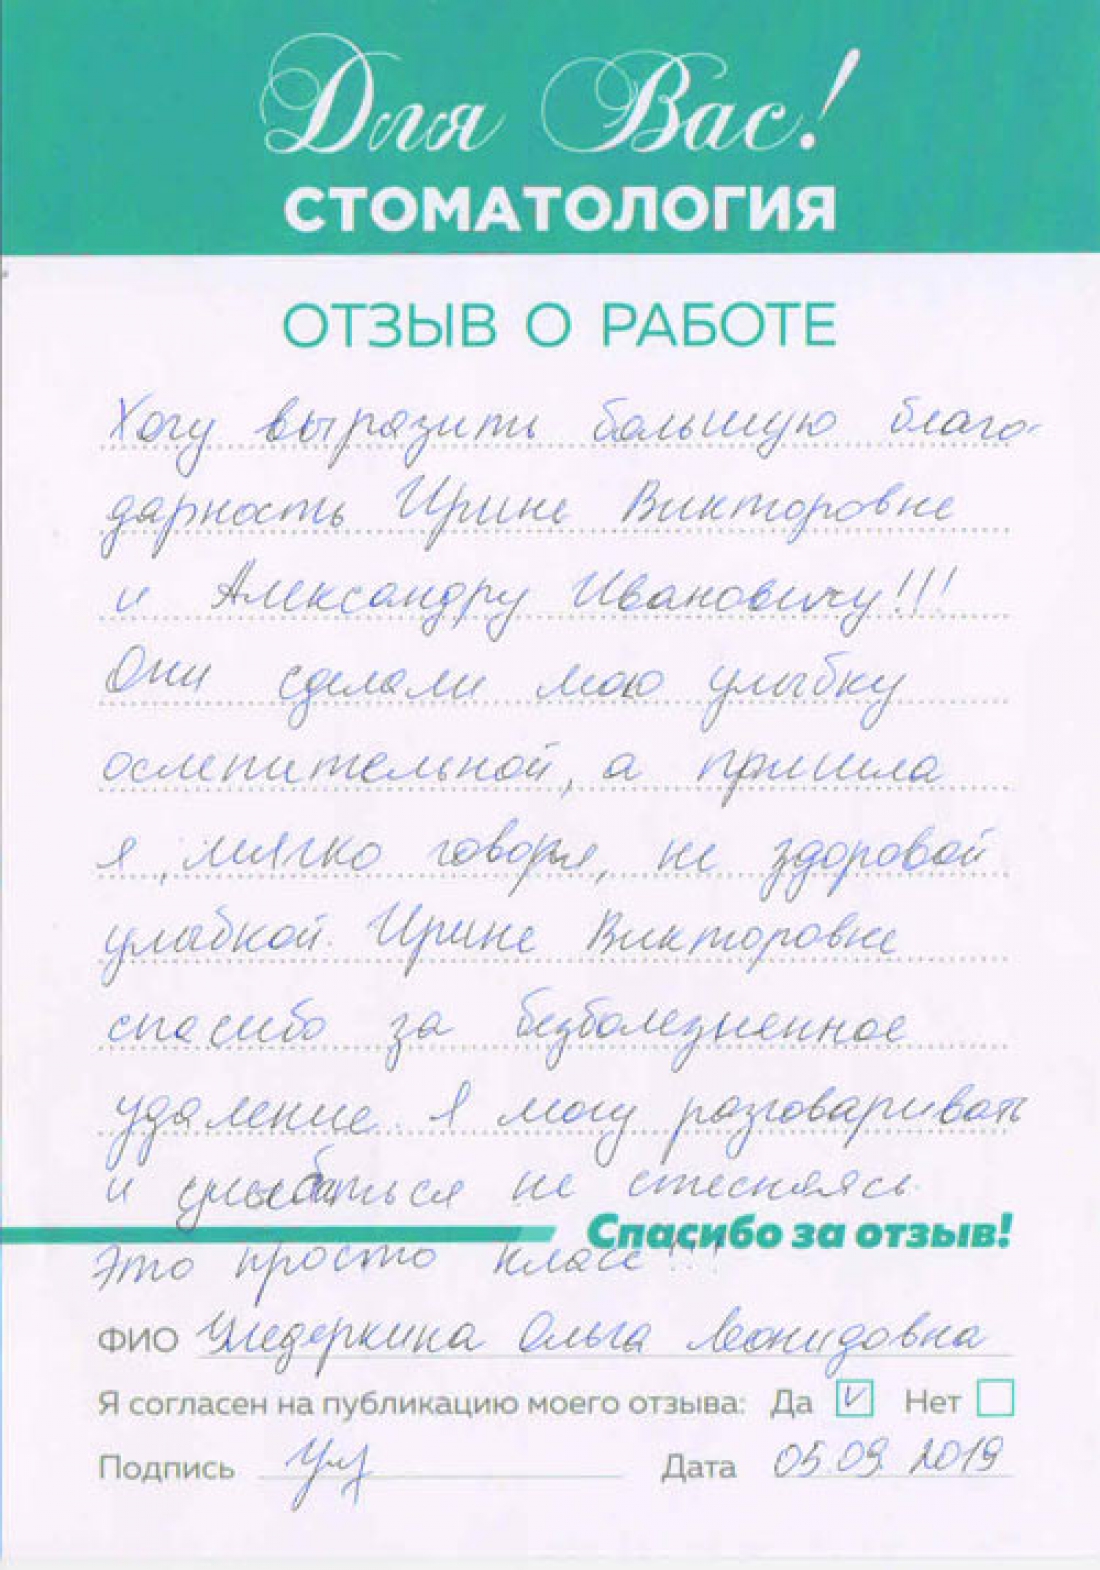 Для Вас!
СТОМАТОЛОГИЯ
ОТЗЫВ О РАБОТЕ
Хочу выразить большую благо-
дарность Ирине Викторовне
и Александру Ивановичу!!!
Они сделали мою улыбку
ослепительной, а пришла
я, мягко говоря, не здоровой
улыбкой. Ирине Викторовне
спасибо за безболезненное
удаление. Я могу разговаривать
и улыбаться не стесняясь.
Спасибо за отзыв!
Это просто класс!!!
ФИО Ольга Леонидовна
Я согласен на публикацию моего отзыва: Да V Нет
Подпись Дата 05.09.2019